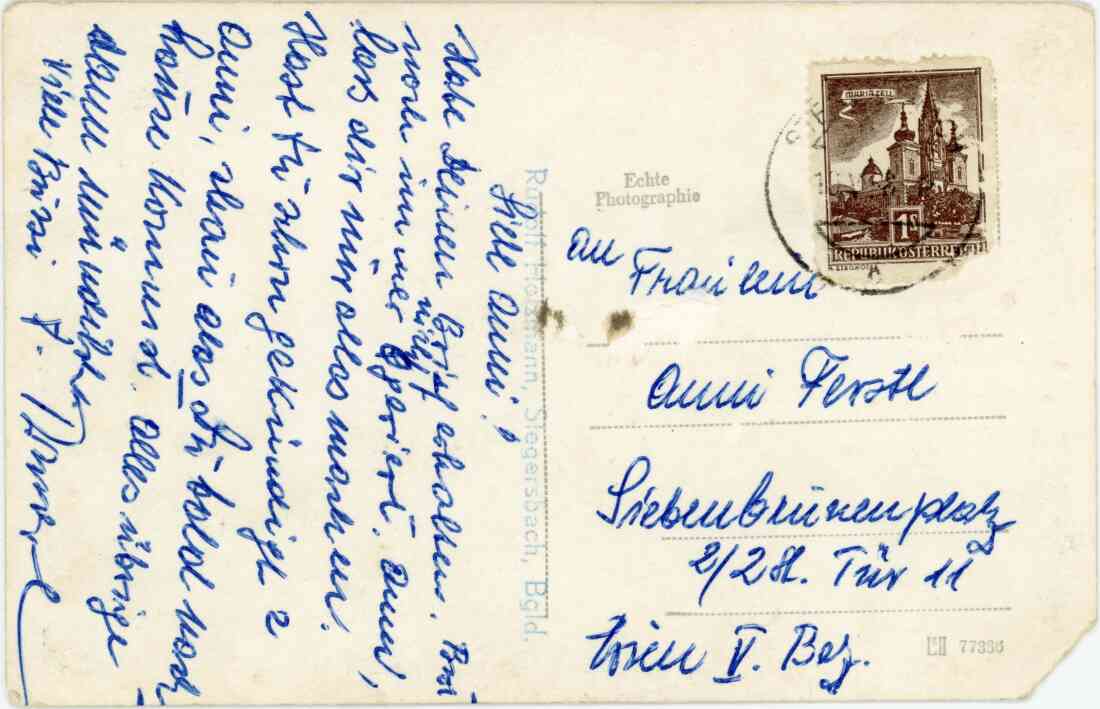 Liebe Anni!
Habe Deinen Brief erhalten. Bin
noch immer nicht operiert. Anni,
lass dir nur alles machen.
Hast du schon gekündigt?
Anni, schau dass du bald nach
hause kommst. Alles übrige
dann mündlich.
Viele Bussi
Rudolf Hofmann, Siegersbach, Bgld.
Echte
Photographie
MARIAZELL
1S
REPUBLIK ÖSTERREICH
An Fräulein
Anni Ferstl
Siebenbrunnenplatz
2/2 St. Tür 11
Wien V. Bez.
77386